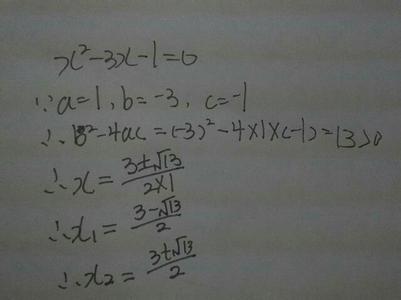 x²-3x-1=0
∵a=1,b=-3,c=-1
∴b²-4ac=(-3)²-4×1×(-1)=13>0
∴x=(3±√13)/(2×1)
∴x₁=(3-√13)/2
∴x₂=(3+√13)/2